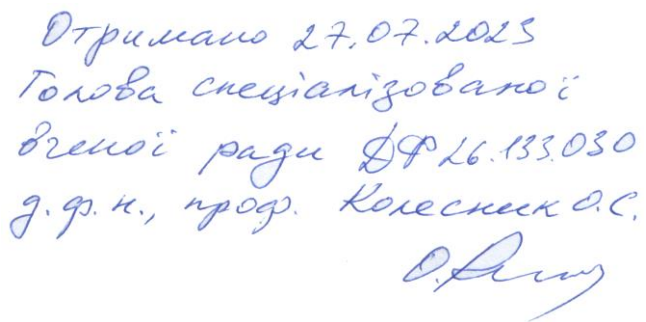 Отримано 27.07.2023
Голова спеціалізованої
вченої ради ДФ 26.133.030
д.ф.н., проф. Колесник О.С.